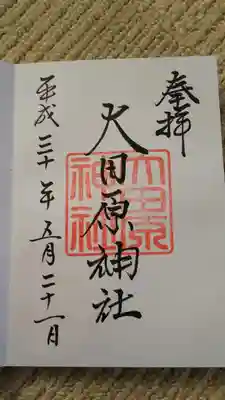 奉拝
大田原神社
平成三十年五月二十一日
大田原
神社